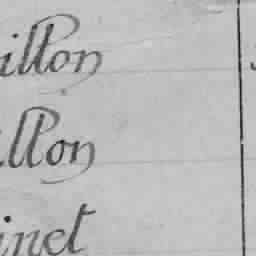 illon
illon
inet